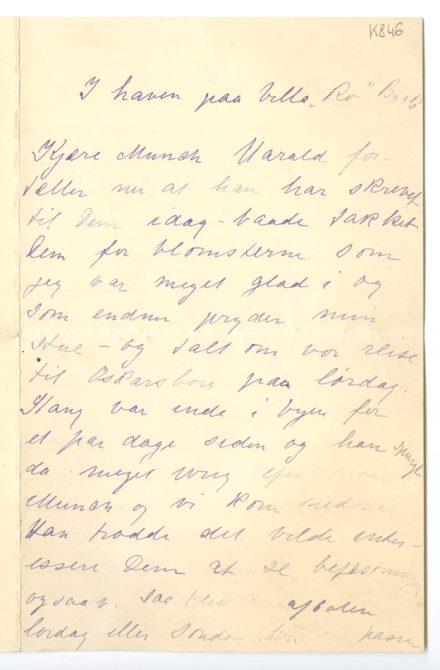 K846
I haven paa Villa "Ro"
Kjære Munch Harald for-
tæller nu at han har skrevet
til Dem idag – baade takket
Dem for blomsterne som
jeg var meget glad i og
som endnu pryder min
stue – og talt om vor reise
til Oskarsborg paa lørdag.
Stang var inde i byen for
et par dage siden og han spurgte
da meget ivrig efter naar
Munch og vi kom nedover
Han trodde det vilde inter-
essere Dem at se befæstningen
ogsaa. Saa blev aftalen
lørdag eller Søndag passer